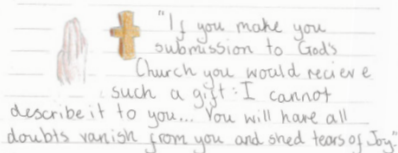 "If you make you
submission to God's
Church you would recieve
such a gift: I cannot
describe it to you... You will have all
doubts vanish from you and shed tears of Joy"